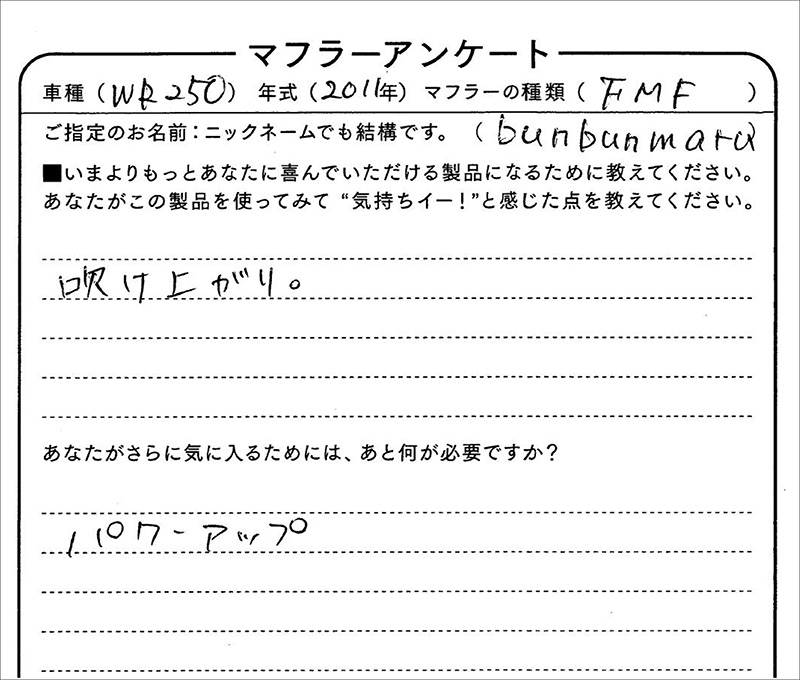 マフラーアンケート
車種（WR250）　年式（2011年）　マフラーの種類（ FMF ）
ご指定のお名前：ニックネームでも結構です。（bunbunmaru）
■いまよりもっとあなたに喜んでいただける製品になるために教えてください。
あなたがこの製品を使ってみて “気持ちイー！”と感じた点を教えてください。
吹け上がり。
あなたがさらに気に入るためには、あと何が必要ですか？
パワーアップ